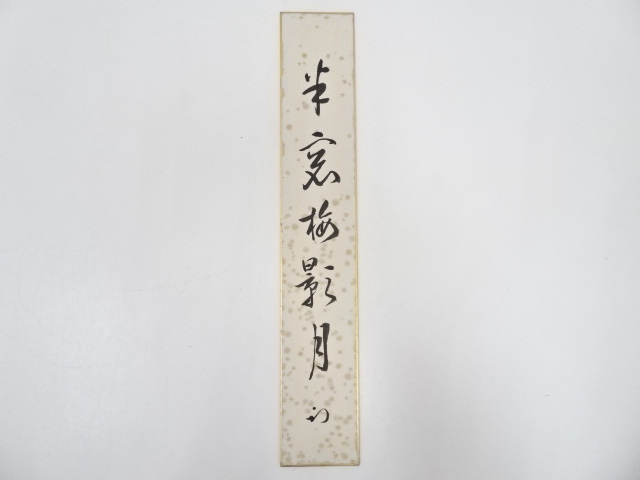 半窓梅影月